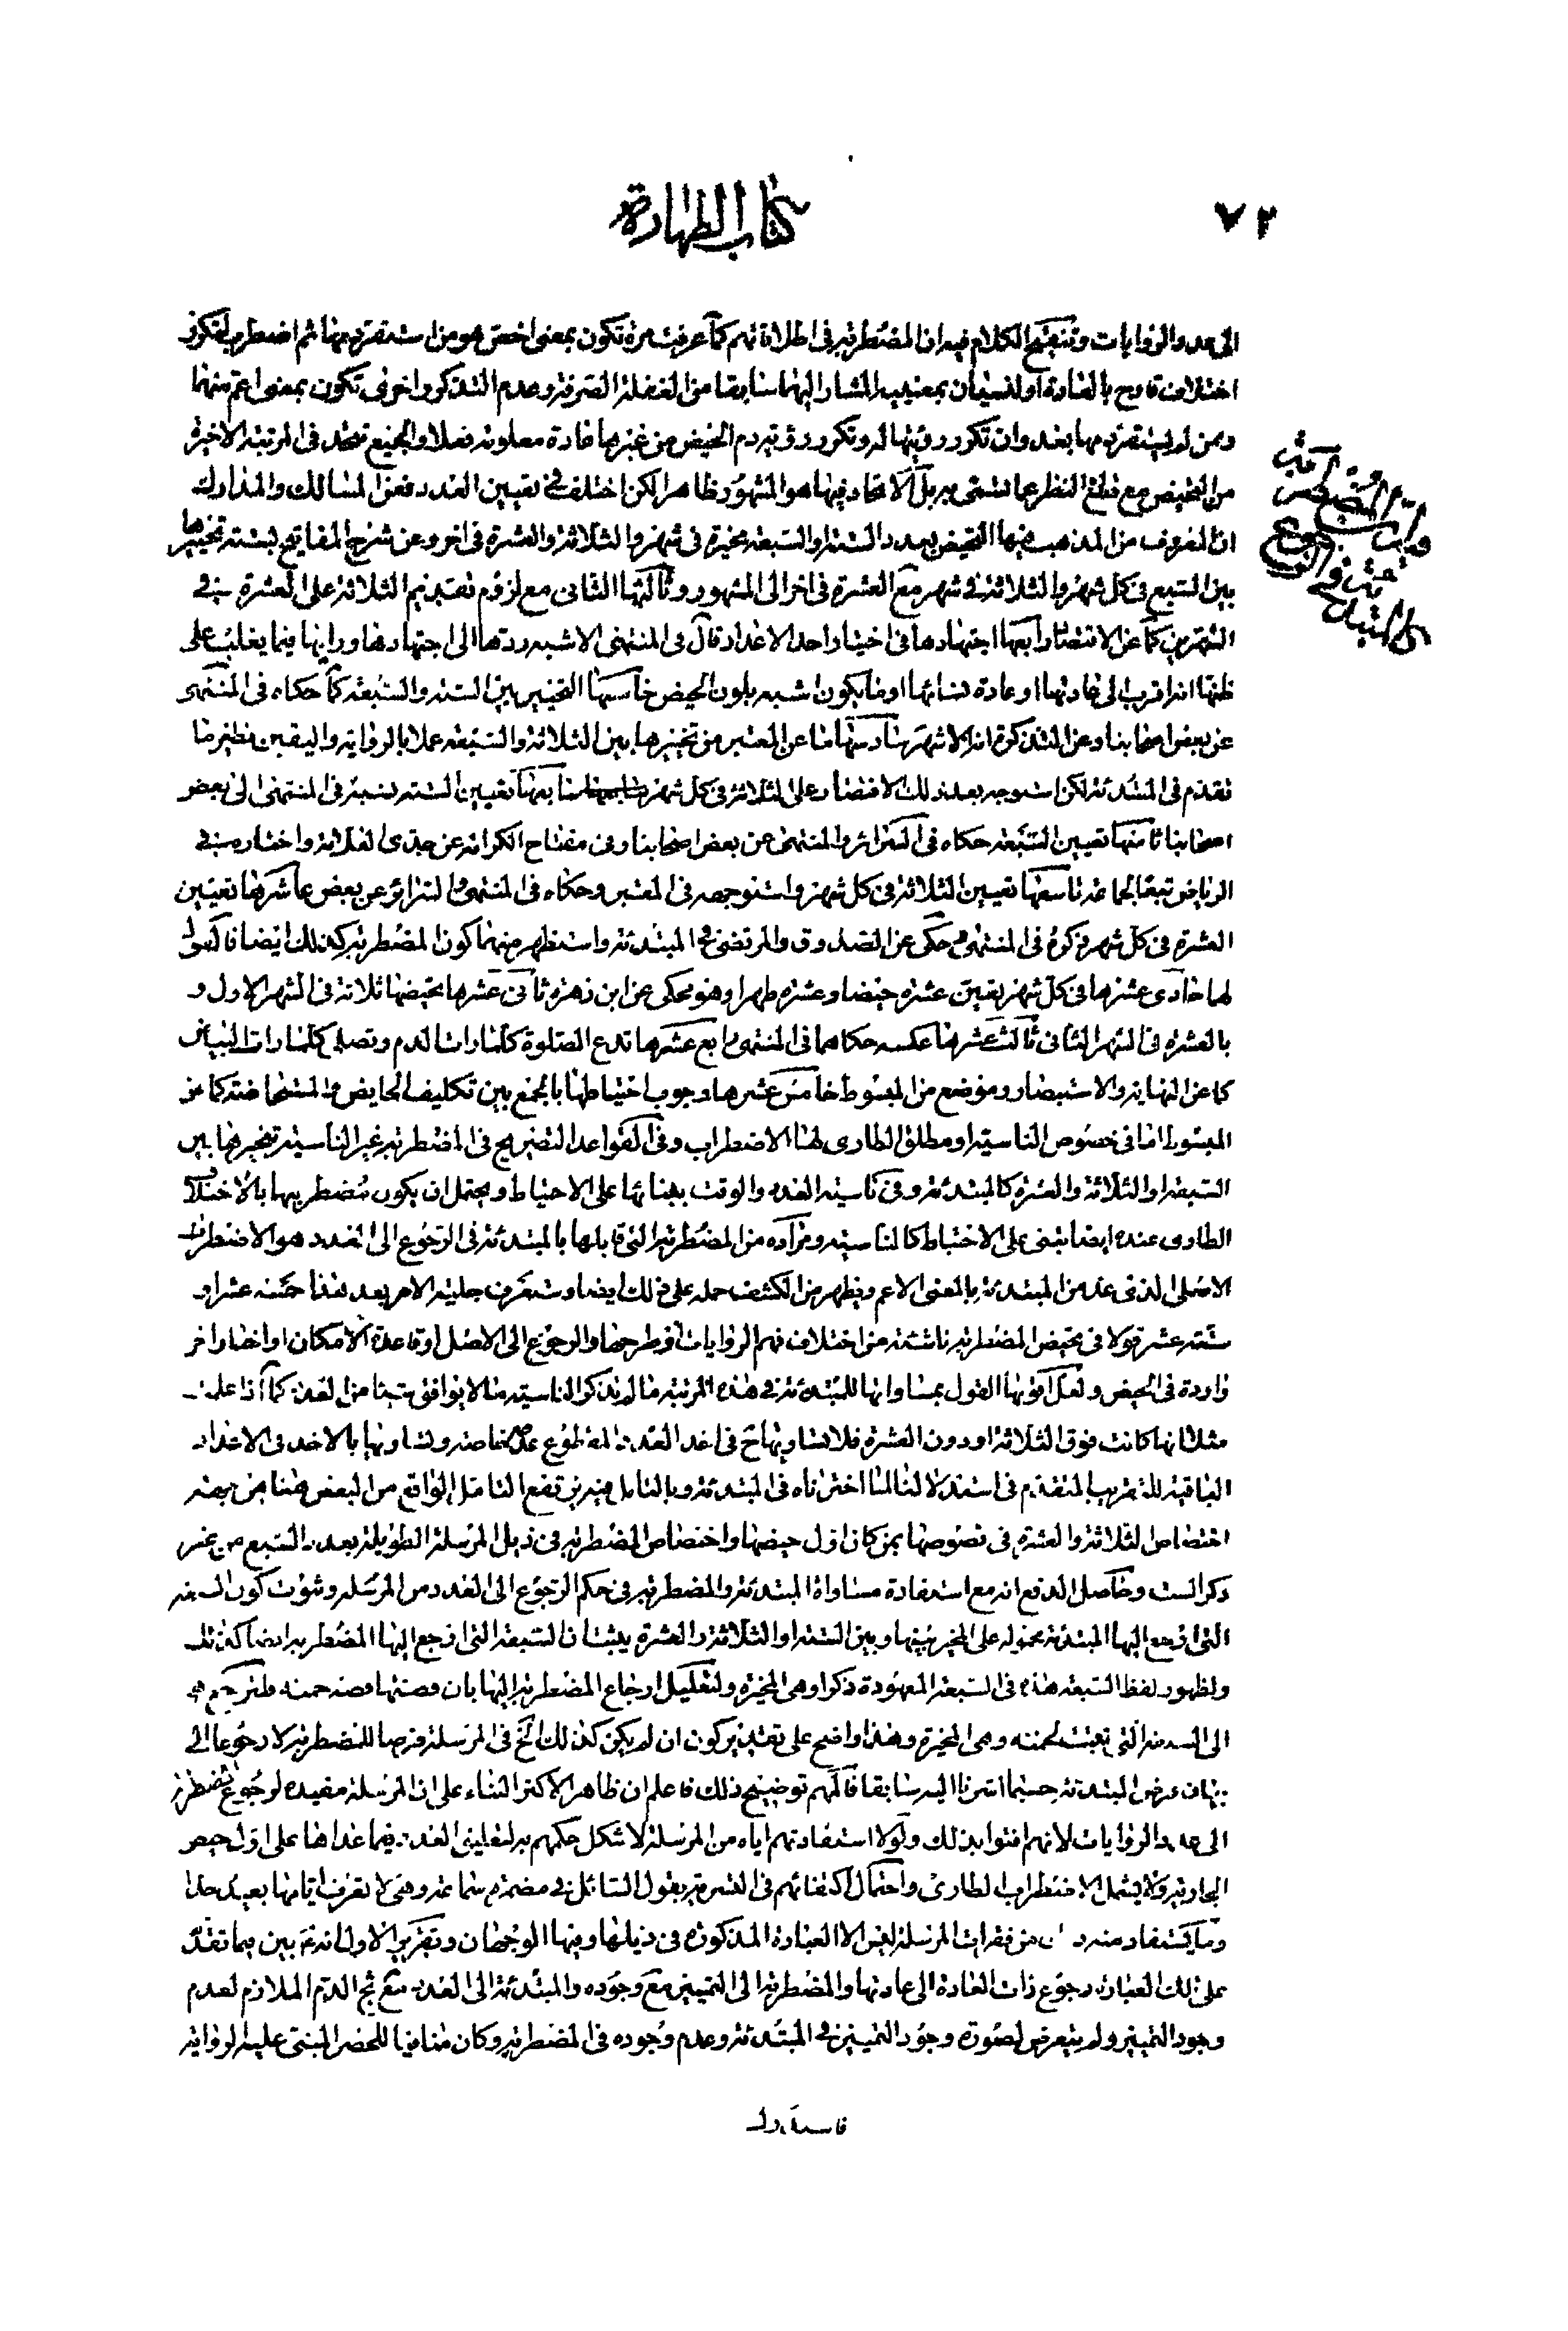 ٧٢
كتاب الطهارة
الى عدد الروايات وتنقيح الكلام فيه ان المضطربة في اطلاقاتهم كما عرفت مرة تكون بمعنى اخص هو من استقرت لها ثم اضطرب لتكرر
اختلاف قادح بالعادة او لنسيان بمعنييه المشار اليهما سابقا من الغفلة الصرفة وعدم التذكر واخرى تكون بمعنى اعم منهما
وممن لم يستقر لها بعد وان تكرر رؤيتها له وتكرر رؤية دم الحيض من غيرها عادة معلومة فعلا والجميع متحد في المرتبة الاخيرة
من التحيض مع قطع النظر عما تسمى به بل الاتحاد فيها هو المشهور ظاهرا لكن اختلف في تعيين العدد فعن المسالك والمدارك
ان المعروف من المذهب فيها التحيض بعدد الستة او السبعة مخيرة في شهر والثلاثة والعشرة في اخر وعن شرح المفاتيح نسبته تخييرها
بين السبع في كل شهر والثلاثة في شهر مع العشرة في اخر الى المشهور وثالثها الثاني مع لزوم تقديم الثلاثة على العشرة في
الشهرين كما عن الاقتصاد رابعها اجتهادها في اختيار احد الاعداد قال في المنتهى الاشبه ردها الى اجتهادها ورايها فيما يغلب على
ظنها انه اقرب الى عادتها او عادة نسائها او ما يكون اشبه بلون الحيض خامسها التخيير بين الستة والسبعة كما حكاه في المنتهى
عن بعض اصحابنا وعن التذكرة انه الاشهر سادسها ما عن المعتبر من تخييرها بين الثلاثة والسبعة عملا بالرواية واليقين نظير ما
تقدم في المبتدئة لكن استوجه بعد ذلك الاقتصار على الثلاثة في كل شهر سابعها تعيين الستة نسبه في المنتهى الى بعض
اصحابنا ثامنها تعيين السبعة حكاه في السرائر والمنتهى عن بعض اصحابنا وفي مفتاح الكرامة عن جدى العلامة واختاره في
الرياض تبعا لجماعة تاسعها تعيين الثلاثة في كل شهر واستوجهه في المعتبر وحكاه في المنتهى والسرائر عن بعض عاشرها تعيين
العشرة في كل شهر مذكور في المنتهى حكى عن الصدوق والمرتضى في المبتدئة واستظهر منهما كون المضطربة كذلك ايضا فاقوال
لها حادى عشرها في كل شهر تعيين عشرة حيضا وعشرة طهرا وهو محكى عن ابن زهرة ثانى عشرها تحيضها ثلاثة في الشهر الاول و
بالعشرة في الشهر الثاني ثالث عشرها عكسه حكاهما في المنتهى رابع عشرها تدع الصلوة كلما رات الدم وتصلي كلما رات البياض
كما عن النهاية والاستبصار وموضع من المبسوط خامس عشرها وجوب احتياطها بالجمع بين تكليف الحايض والمستحاضة كما عن
المبسوط اما في خصوص الناسية او مطلق الطارى لها الاضطراب وفي القواعد التصريح في المضطربة غير الناسية تخييرها بين
السبعة او الثلاثة والعشرة كالمبتدئة وفي ناسية العدد والوقت ببنائها على الاحتياط ويحتمل ان يكون مضطربها بالاختلاف
الطارى عنده ايضا تبنى على الاحتياط كالناسية ومراده من المضطربة التى قابلها بالمبتدئة في الرجوع الى العدد هو الاضطراب
الاصلى الذى عد من المبتدئة بالمعنى الاعم ويظهر من الكشف حمله على ذلك ايضا وستعرف جلية الامر بعد فهذا خمسة عشر او
ستة عشر قولا في تحيض المضطربة ناشئة من اختلاف فهم الروايات او طرحها والرجوع الى الاصل او قاعدة الامكان او اخبار اخر
واردة في الحيض ولعل اقربها القول بمساواتها للمبتدئة في هذه المرتبة ما لم تذكر الناسية ما لا يوافق شيئا من العدد كما اذا علمت
مثلا انها كانت فوق الثلاثة او دون العشرة فلا تساويها ح في اخذ العدد المقطوع عدمه خاصة وتساويها بالاخذ في الاعداد
الباقية للتقريب المتقدم في استدلالنا لما اخترناه في المبتدئة وبالتامل فيه يرتفع التامل الواقع من البعض هنا من جهة
اختصاص الثلاثة والعشرة في نصوصها بمن كان اول حيضها واختصاص المضطربة في ذيل المرسلة الطويلة بعدد السبع من غير
ذكر الست وحاصل الدفع انه مع استفادة مساواة المبتدئة والمضطربة في حكم الرجوع الى العدد من المرسلة وثبوت كون السبعة
التى ارجع اليها المبتدئة محمولة على المخير بينها وبين الستة او الثلاثة والعشرة يثبت ان السبعة التى ارجع اليها المضطربة ايضا كذلك
ولظهور لفظ السبعة هذه في السبعة المعهودة ذكرا وهى المخيرة ولتعليل ارجاع المضطربة اليها بان قصتها قصة حمنة فترجع هى
الى السبعة التى تعينت لحمنة وهى المخيرة وهذا واضح على تقدير كون ان لم يكن كذلك الخ في المرسلة فرضا للمضطربة لا رجوعا الى
بيان فرض المبتدئة حسبما اشرنا اليه سابقا فالمهم توضيح ذلك فاعلم ان ظاهر الاكثر البناء على ان المرسلة مفيدة لرجوع المضطربة
الى عدد الروايات لانهم افتوا بذلك ولولا استفادتهم اياه من المرسلة لاشكل حكمهم به لتعليق العدد فيما عداها على اول حيض
الجارية ولا يشمل الاضطراب الطارى واحتمال اكتفائهم في التسرية بقول السائل في مضمرة سماعة وهى لا تعرف ايامها بعيد جدا
وما يستفاد منه من فقرات المرسلة ليس الا العبارة المذكورة في ذيلها وفيها الوجهان وتقريب الاول انه بين فيما تقدم
على تلك العبارة رجوع ذات العادة الى عادتها والمضطربة الى التمييز مع وجوده والمبتدئة الى العدد مع ثج الدم الملازم لعدم
وجود التمييز ولم يتعرض لصورة وجود التمييز في المبتدئة وعدم وجوده في المضطربة وكان منافيا للحصر المبتنى عليه الرواية